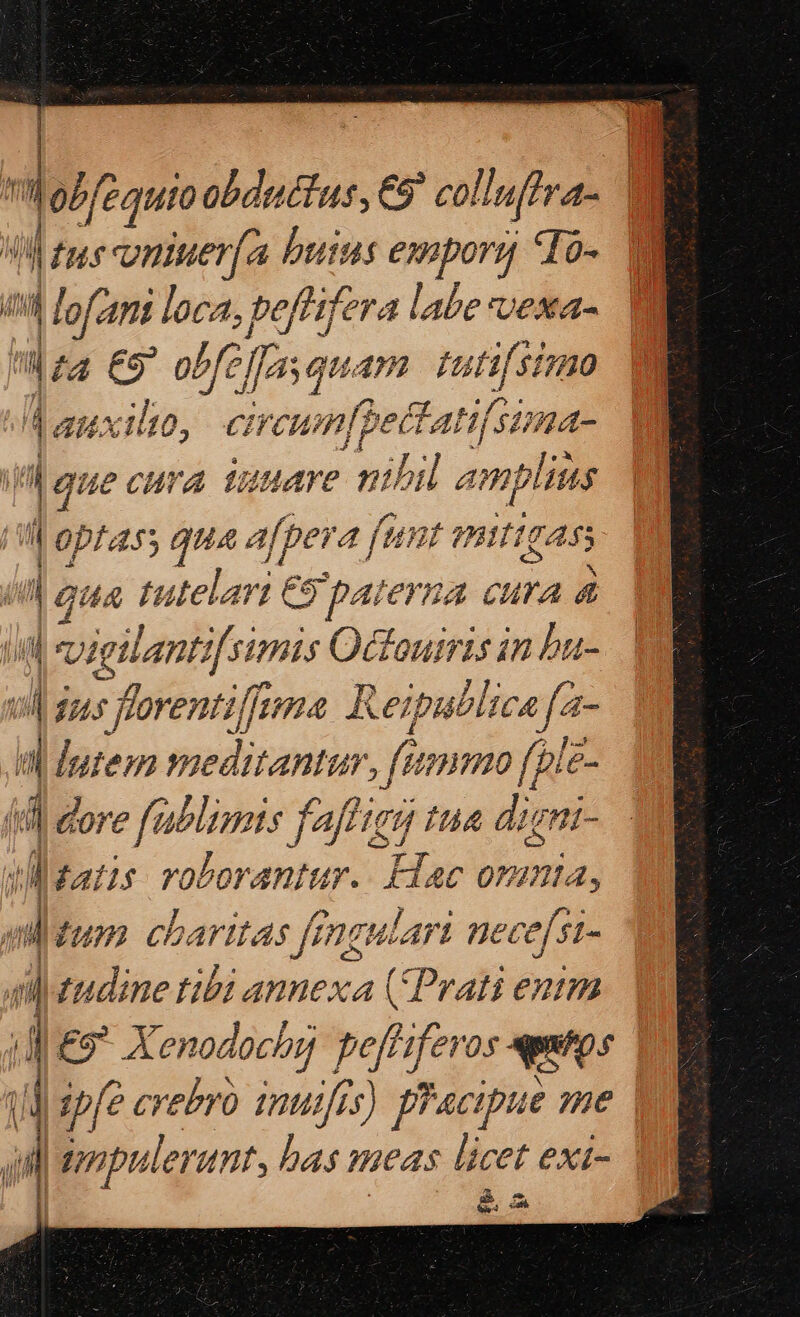 obſequio obductus, & colluſtra-
tus vniuerſa huius emporij To-
loſani loca, peſtifera labe vexa-
ta & obſeſſa; quam tutiſsimo
auxilio, circumſpectatiſsima-
que cura iuuare nihil ampliùs
optas; quæ aſpera ſunt mitigas;
quæ tutelari & paterna cura à
vigilantiſsimis Octouiris in hu-
ius florentiſſimæ Reipublicæ ſa-
lutem meditantur, ſummo ſplē-
dore ſublimis faſtigij tuæ digni-
tatis roborantur. Hæc omnia,
tum charitas ſingulari neceſsi-
tudine tibi annexa (Prati enim
& Xenodochij peſtiferos
ipſe crebrò inuiſis) præcipuè me
impulerunt, has meas licet exi-